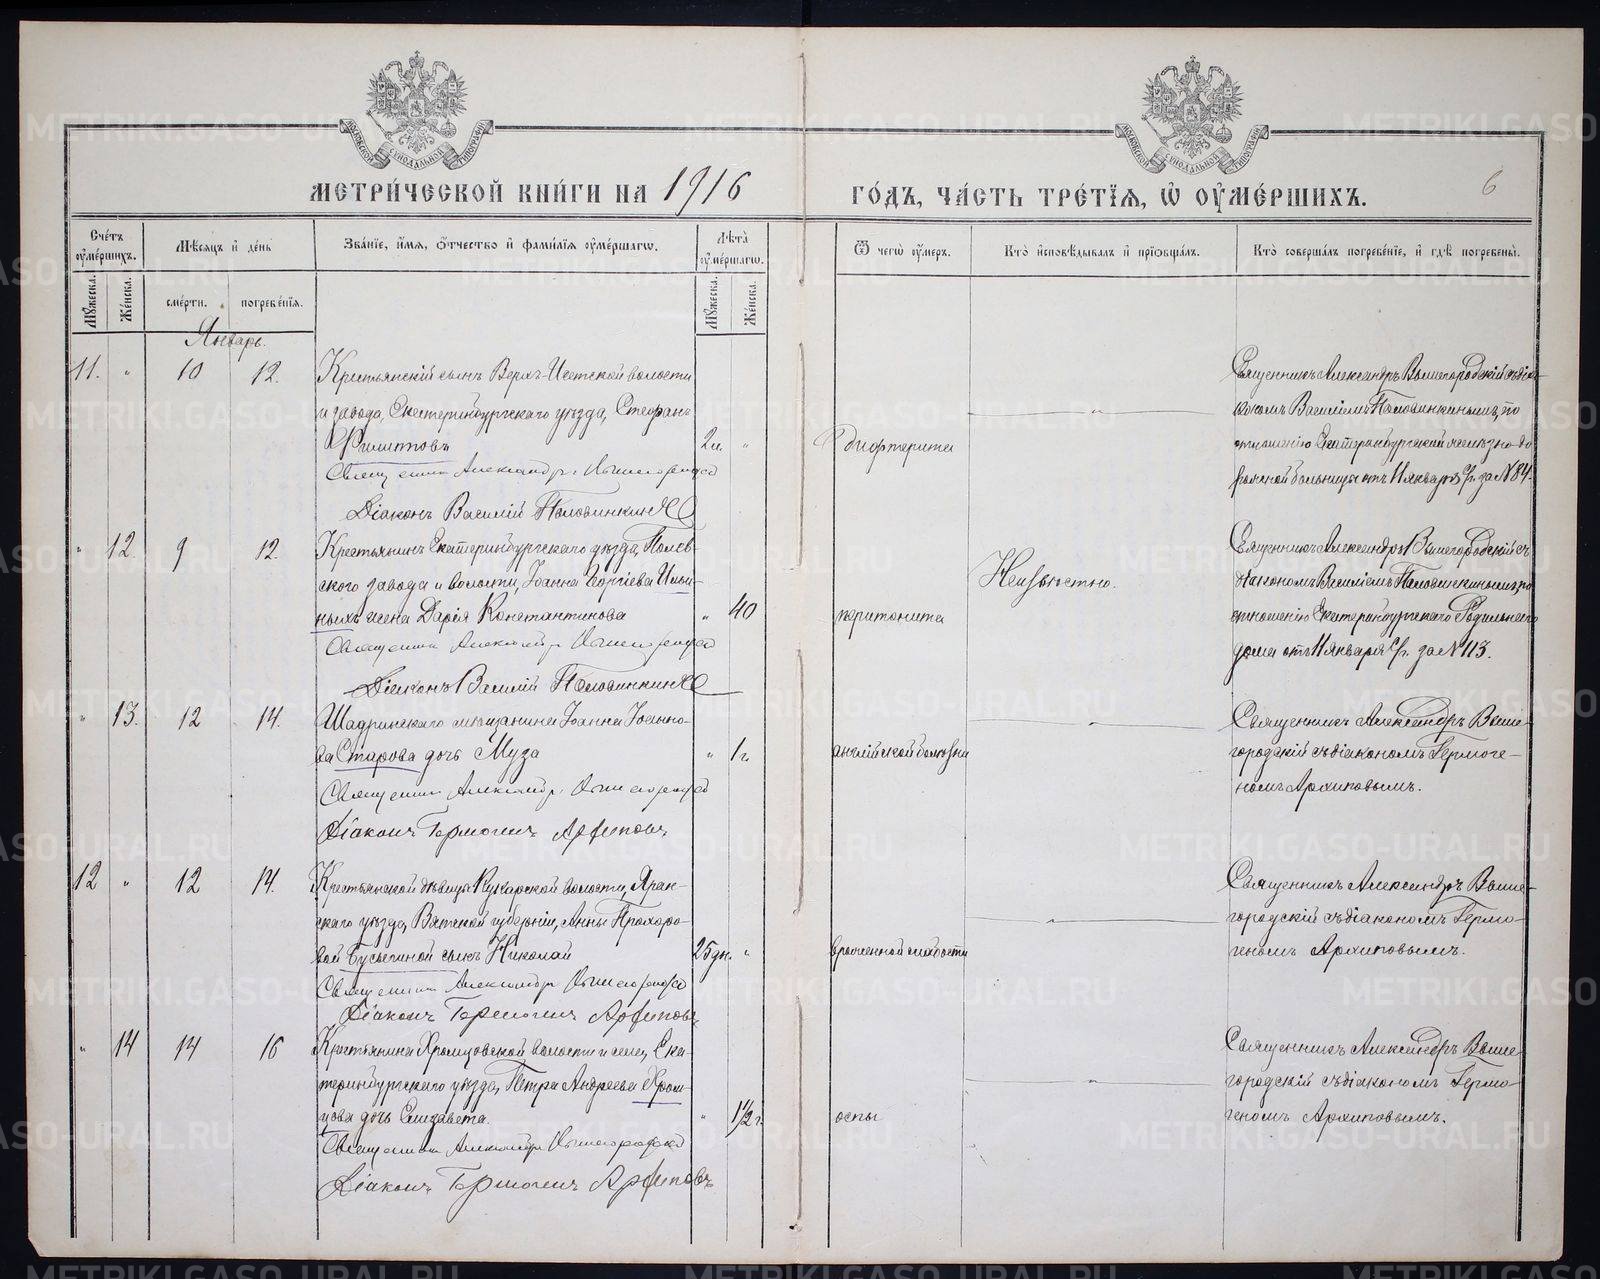 МЕТРИ́ЧЕСКОЙ КНИ́ГИ НА 1916
ГО́ДЪ, ЧА́СТЬ ТРЕ́ТЇѦ, Ѡ҆ ОУ҆МЕ́РШИХЪ.
6
МОСКОВСКОЙ СѴНОДАЛЬНОЙ ТИПОГРАФІИ
МОСКОВСКОЙ СѴНОДАЛЬНОЙ ТИПОГРАФІИ
Сче́тъ оу҆ме́ршихъ.
Мꙋ́жеска.
Же́нска.
Мѣ́сѧцъ и҆ де́нь
сме́рти.
погребе́нїѧ.
Зва́нїе, и҆́мѧ, ѻ҆́тчество и҆ фами́лїѧ оу҆ме́ршагѡ.
Лѣ́та оу҆ме́ршагѡ.
Мꙋ́жеска.
Же́нска.
Ѿ чегѡ̀ оу҆́меръ.
Кто̀ и҆сповѣ́дывалъ и҆ прїѡбща́лъ.
Кто̀ соверша́лъ погребе́нїе, и҆ гдѣ̀ погребены̀.
Январь.
11. " 10 12.
Крестьянскій сынъ Верхъ-Исетской волости
и завода, Екатеринбургскаго уѣзда, Стефанъ
Филиповъ
2 м. "
Священникъ Александръ Вышегородскій
Діаконъ Василій Половинкинъ
дифтерита
"
Священникъ Александръ Вышегородскій съ діа-
кономъ Василіемъ Половинкинымъ, по
отношенію Екатеринбургской желѣзно до-
рожной больницы отъ 11 января с/г. за № 84.
" 12. 9 12.
Крестьянина Екатеринбургскаго уѣзда, Полев-
ского завода и волости, Іоанна Георгіева Ильи-
ныхъ жена Дарія Константинова
" 40
Священникъ Александръ Вышегородскій
Діаконъ Василій Половинкинъ
перитонита
Неизвѣстно.
Священникъ Александръ Вышегородскій съ
діакономъ Василіемъ Половинкинымъ, по
отношенію Екатеринбургскаго Родильнаго
дома отъ 11 января с/г. за № 113.
" 13. 12 14.
Шадринскаго мѣщанина Іоанна Іоанно-
ва Старова дочь Муза
" 1 г.
Священникъ Александръ Вышегородскій
Діаконъ Гермогенъ Архиповъ
англійской болѣзни
"
Священникъ Александръ Выше-
городскій съ діакономъ Гермоге-
номъ Архиповымъ.
12 " 12 14.
Крестьянской дѣвицы Кукарской волости, Яран-
скаго уѣзда, Вятской губерніи, Анны Прохоро-
вой Бусыгиной сынъ Николай
25 дн. "
Священникъ Александръ Вышегородскій
Діаконъ Гермогенъ Архиповъ
врожденной слабости
"
Священникъ Александръ Выше-
городскій съ діакономъ Гермо-
геномъ Архиповымъ.
" 14 14 16
Крестьянина Хромцовской волости и села, Ека-
теринбургскаго уѣзда, Петра Андреева Хром-
цова дочь Елизавета
" 1 1/2 г.
Священникъ Александръ Вышегородскій
Діаконъ Гермогенъ Архиповъ
оспы
"
Священникъ Александръ Выше-
городскій съ діакономъ Гермо-
геномъ Архиповымъ.
METRIKI.GASO-URAL.RU